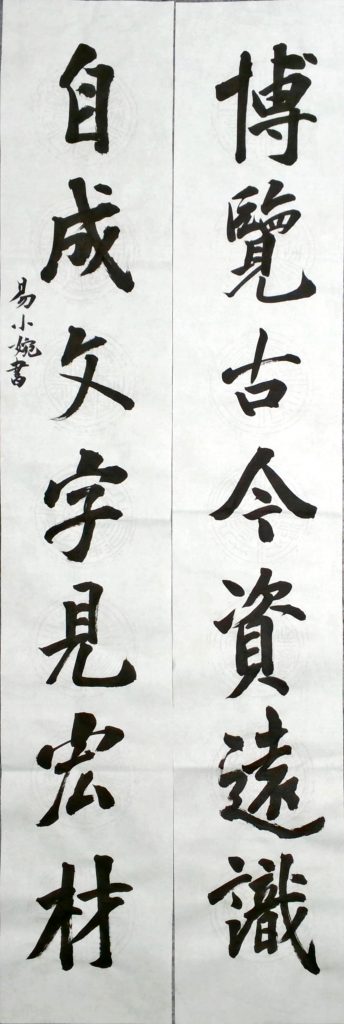 博覽古今資遠識
自成文字見宏材
易小婉書